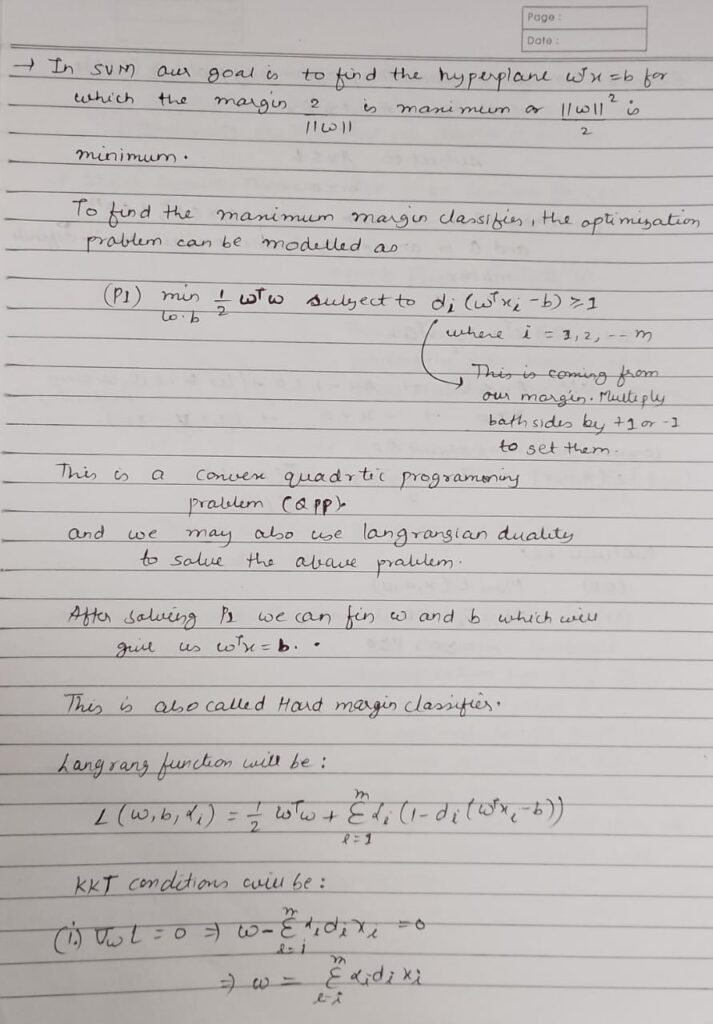 Page :
Date :
→ In SVM our goal is to find the hyperplane wᵀx = b for
which the margin 2/||w|| is maximum or ||w||²/2 is
minimum.
To find the maximum margin classifier, the optimization
problem can be modelled as
(P1) min w.b 1/2 wᵀw subject to dᵢ (wᵀxᵢ - b) ≥ 1
where i = 1, 2, -- m
This is coming from
our margin. Multiply
both sides by +1 or -1
to set them.
This is a convex quadrtic programming
problem (QPP)
and we may also use langrangian duality
to solve the above problem.
After solving P1 we can fin w and b which will
give us wᵀx = b.
This is also called Hard margin classifier.
Langrang function will be :
L (w, b, αᵢ) = 1/2 wᵀw + Σ_{i=1}^{m} αᵢ (1 - dᵢ (wᵀxᵢ - b))
KKT conditions will be :
(i.) ∇w L = 0 ⇒ w - Σ_{i=1}^{m} αᵢdᵢxᵢ = 0
⇒ w = Σ_{i=i}^{m} αᵢdᵢxᵢ